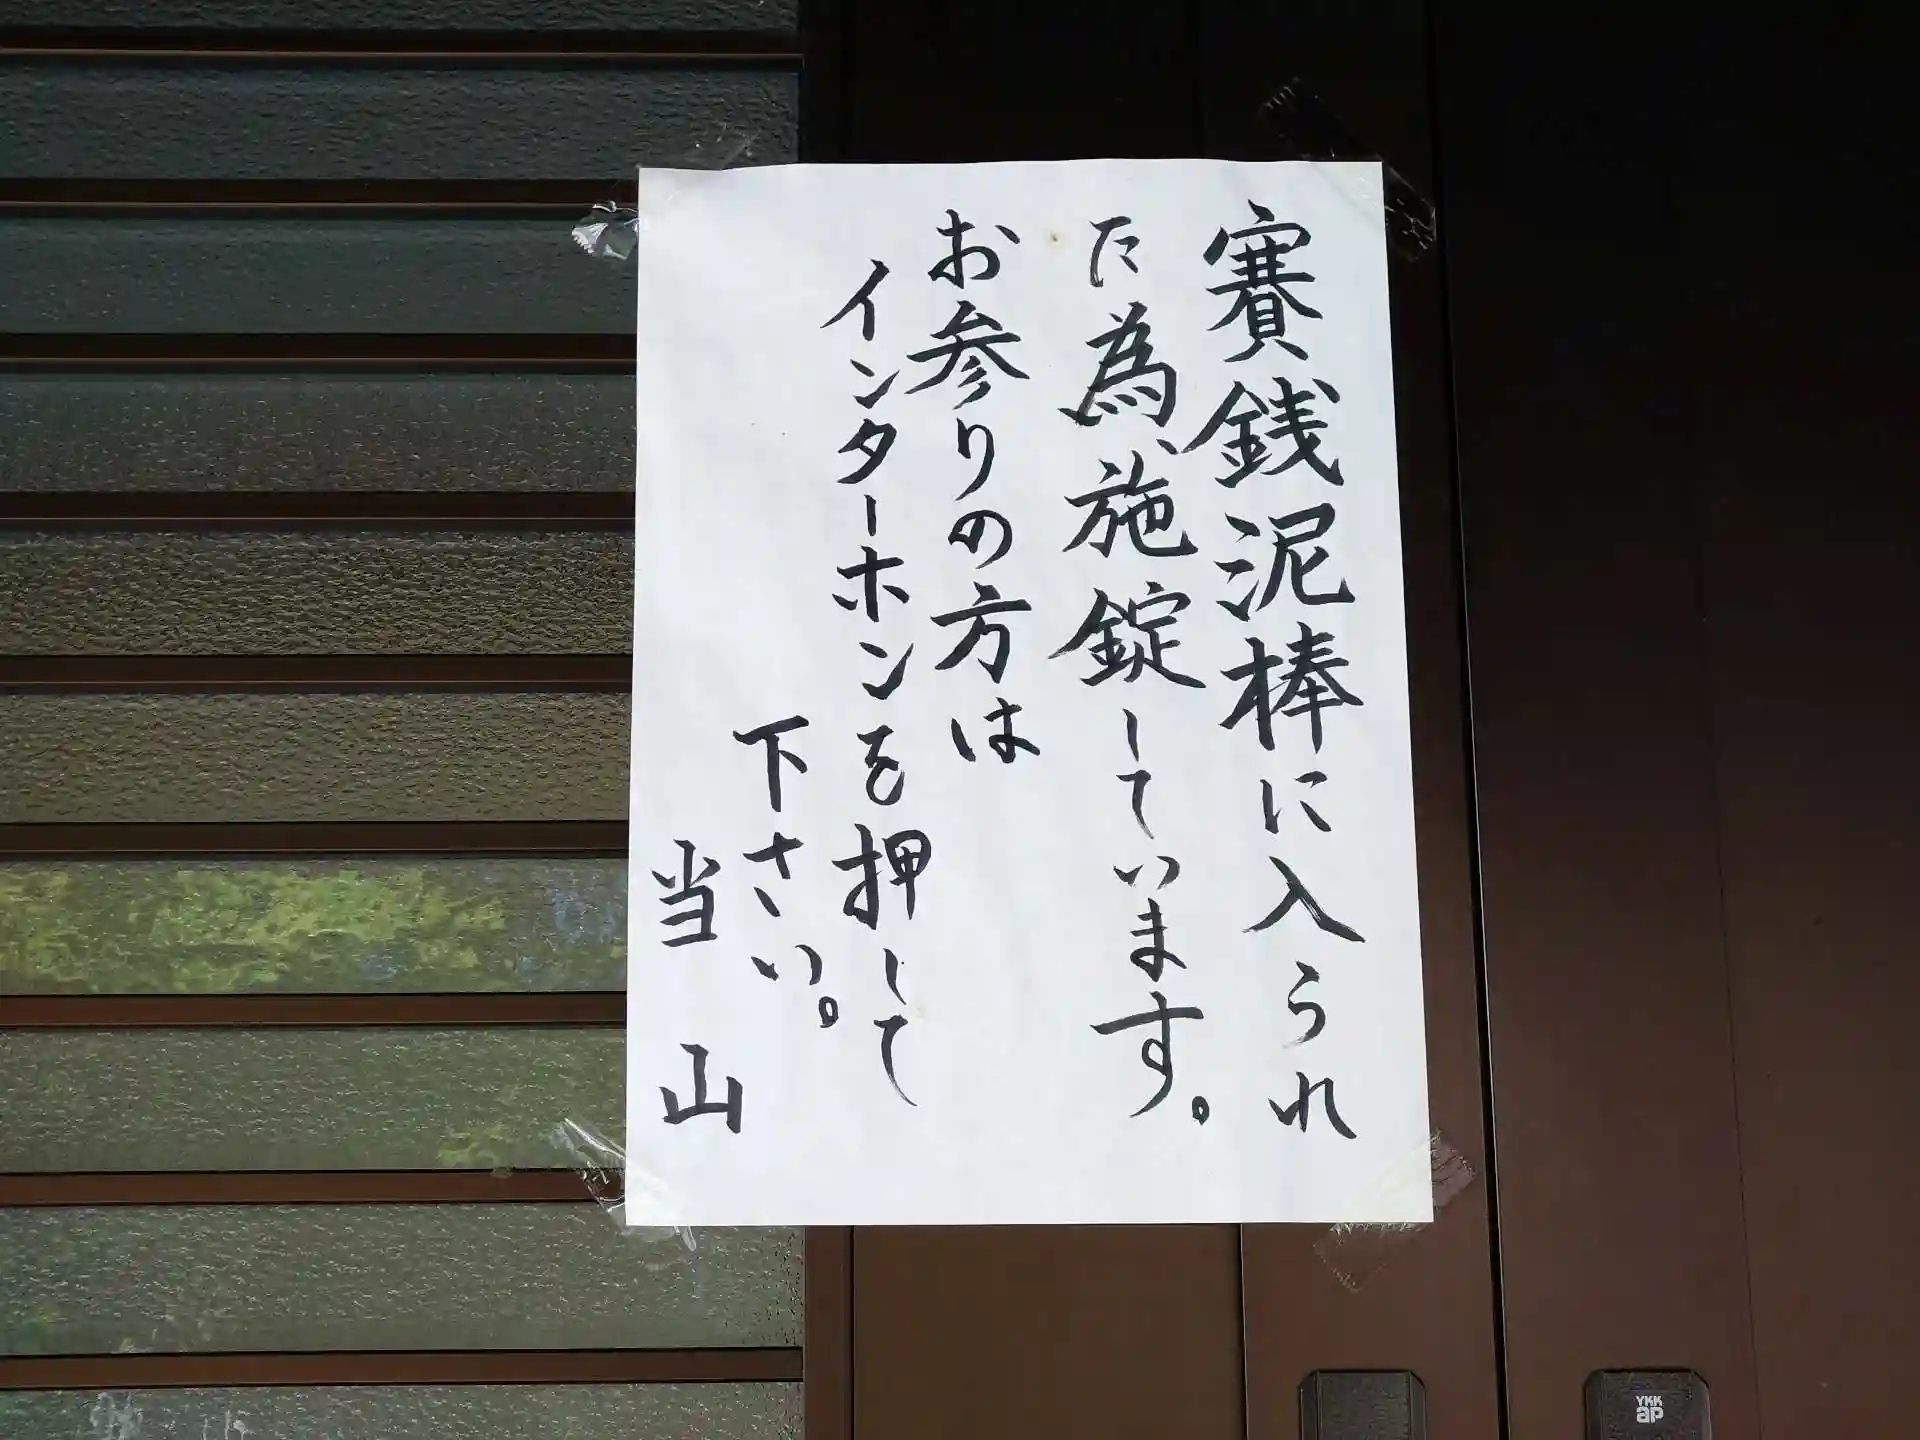 賽銭泥棒に入られ
た為、施錠しています。
お参りの方は
インターホンを押して
下さい。
当山
YKK
ap